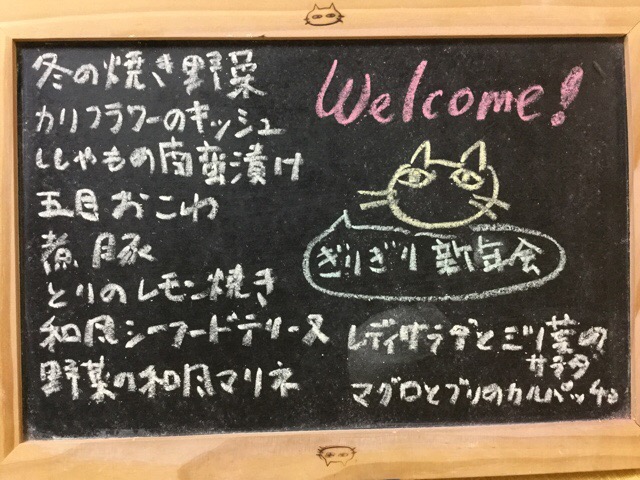 冬の焼き野菜
カリフラワーのキッシュ
ししゃもの南蛮漬け
五目おこわ
煮豚
とりのレモン焼き
和風シーフードテリーヌ
野菜の和風マリネ
Welcome!
ぎりぎり新年会
レディサラダとミツ葉の
サラダ
マグロとブリのカルパッチョ